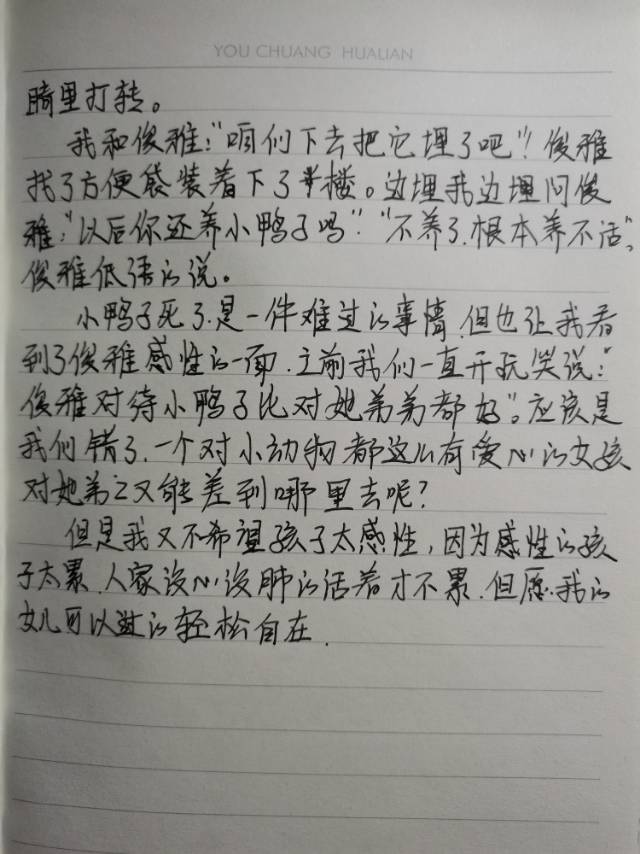 YOU CHUANG HUALIAN
睛里打转。
我和俊雅:“咱们下去把它埋了吧”！俊雅
找了方便袋装着下了楼。边埋我边埋问俊
雅:“以后你还养小鸭子吗”“不养了.根本养不活”,
俊雅低语的说。
小鸭子死了.是一件难过的事情.但也让我看
到了俊雅感性的一面.之前我们一直开玩笑说:“
俊雅对待小鸭子比对她弟弟都好”。应该是
我们错了.一个对小动物都这么有爱心的女孩
对她弟弟又能差到哪里去呢?
但是我又不希望孩子太感性，因为感性的孩
子太累.人家没心没肺的活着才不累.但愿.我的
女儿可以过的轻松自在.